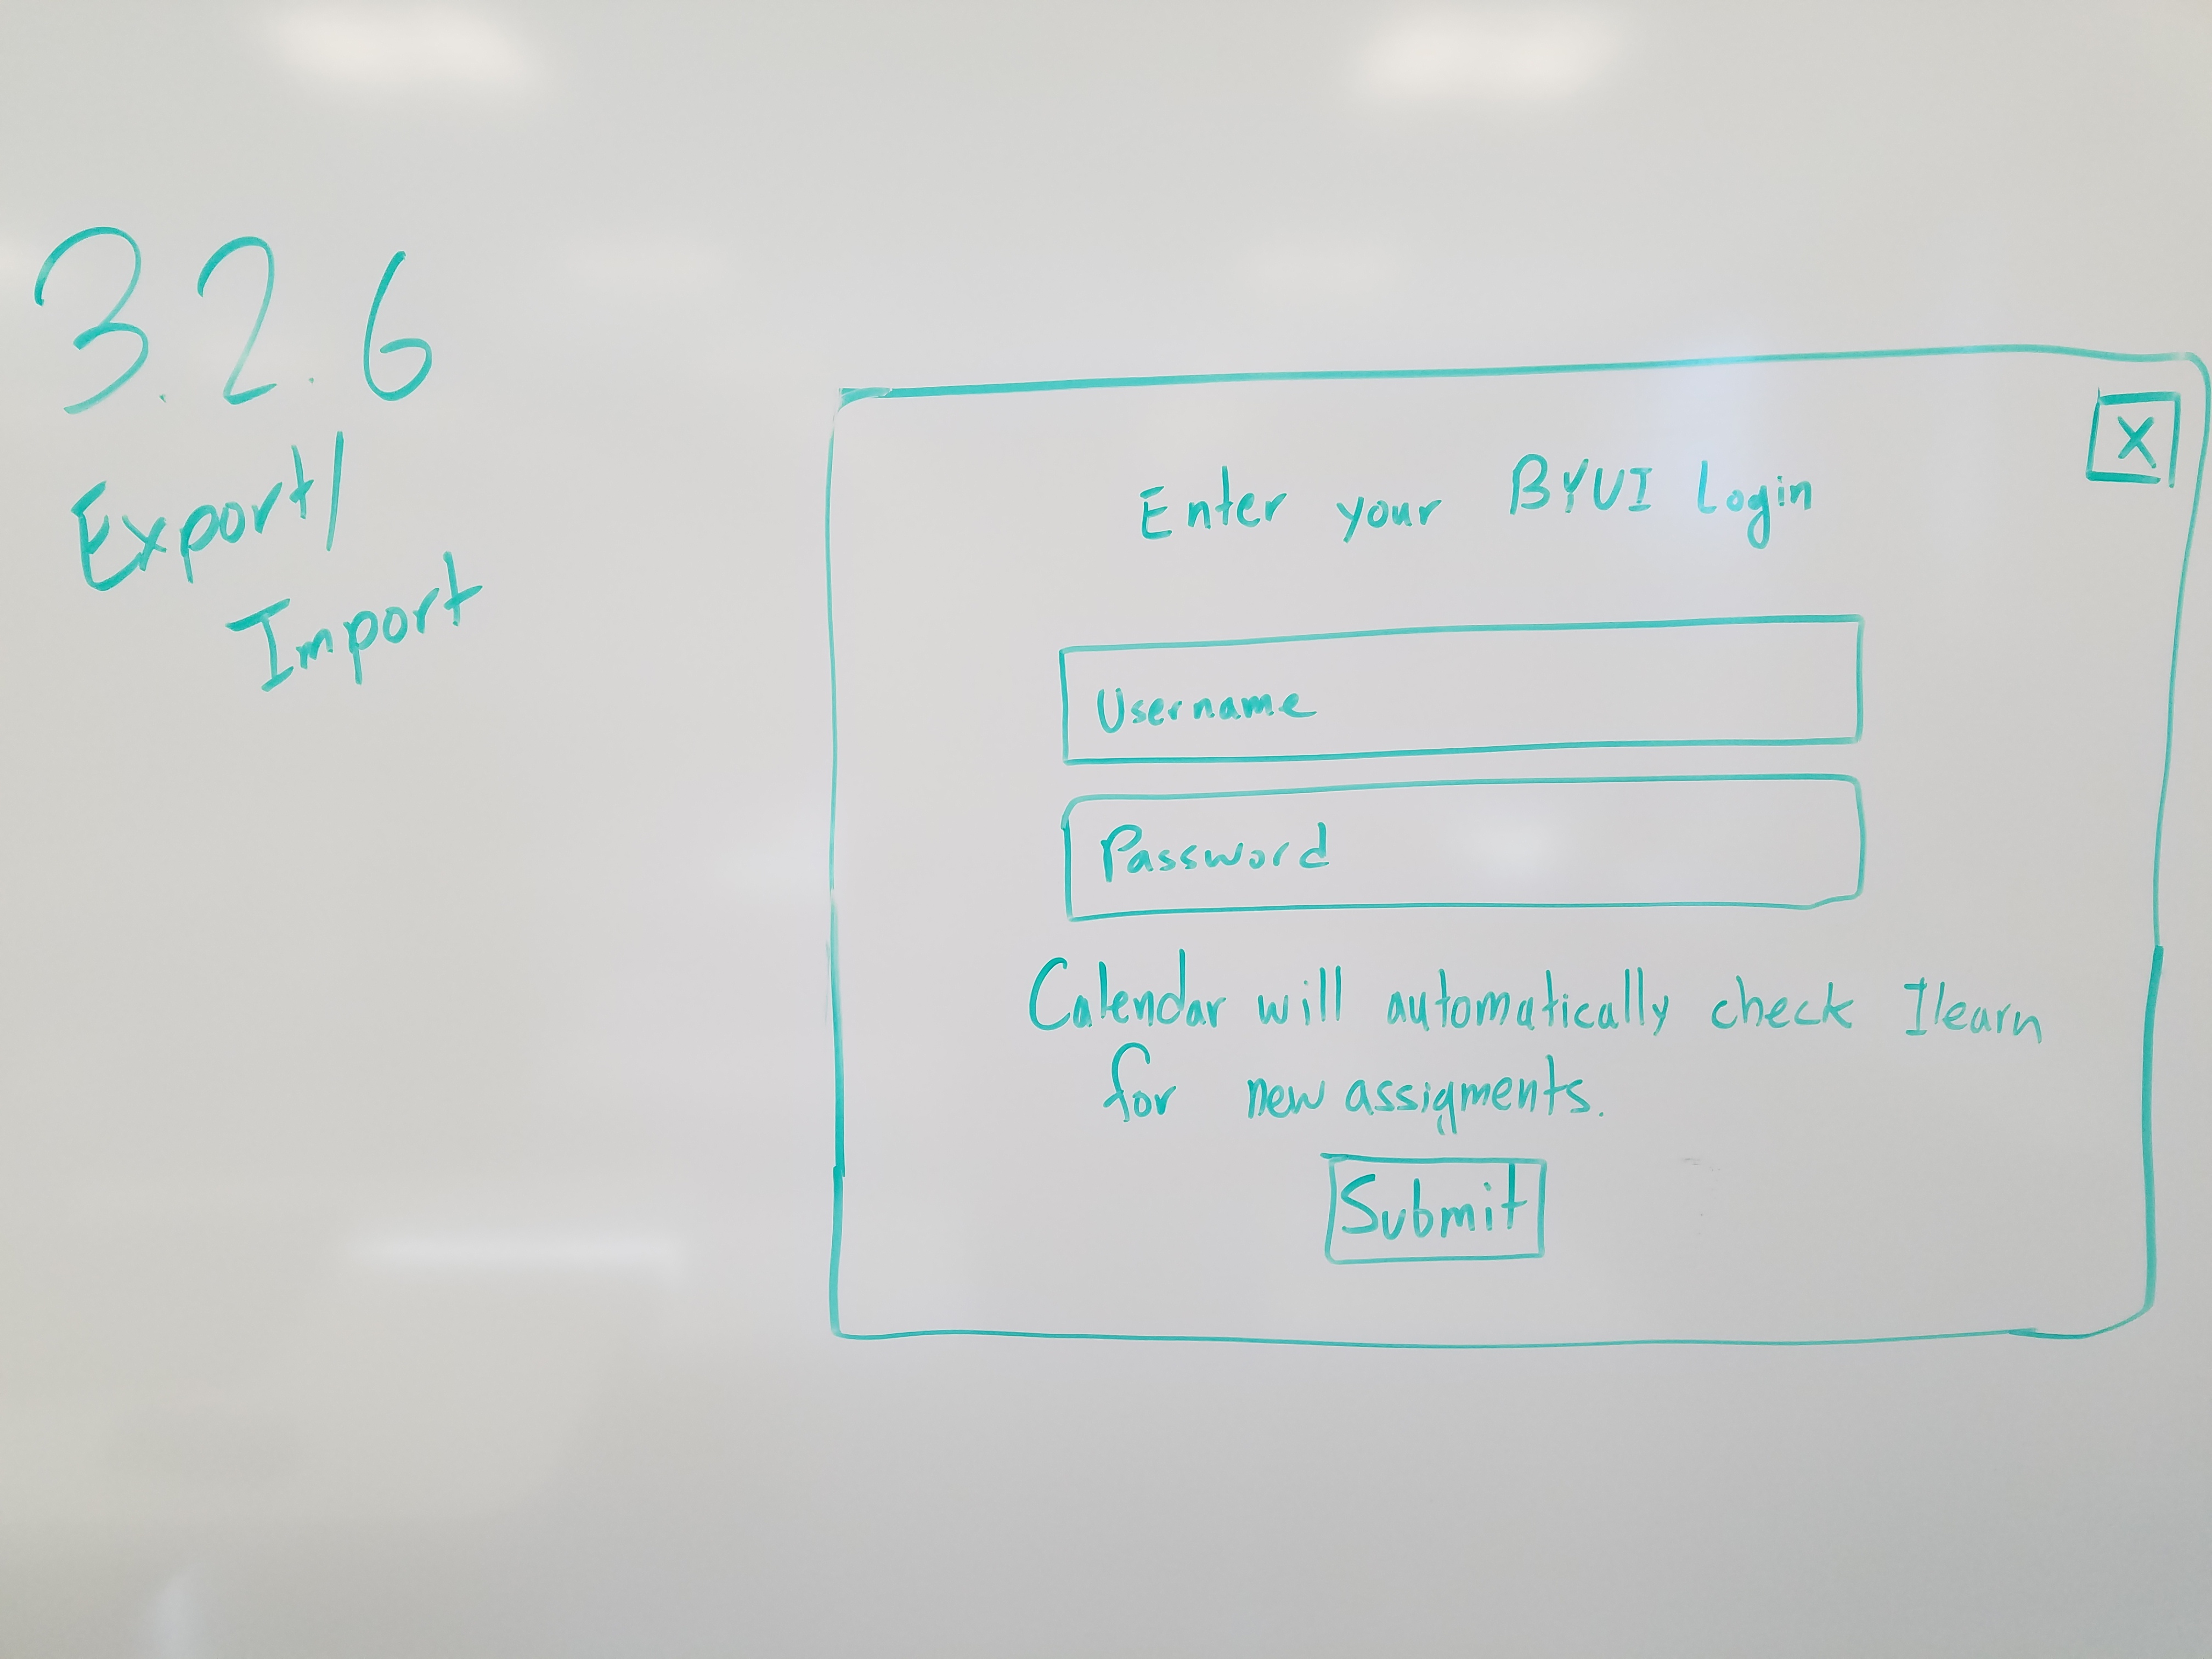 3.2.6
Export/
Import
X
Enter your BYUI Login
Username
Password
Calendar will automatically check Ilearn
for new assigments.
Submit